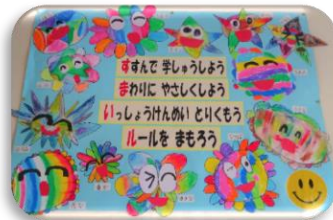 すすんで 学しゅうしよう
まわりに やさしくしよう
いっしょうけんめい とりくもう
ルールを まもろう